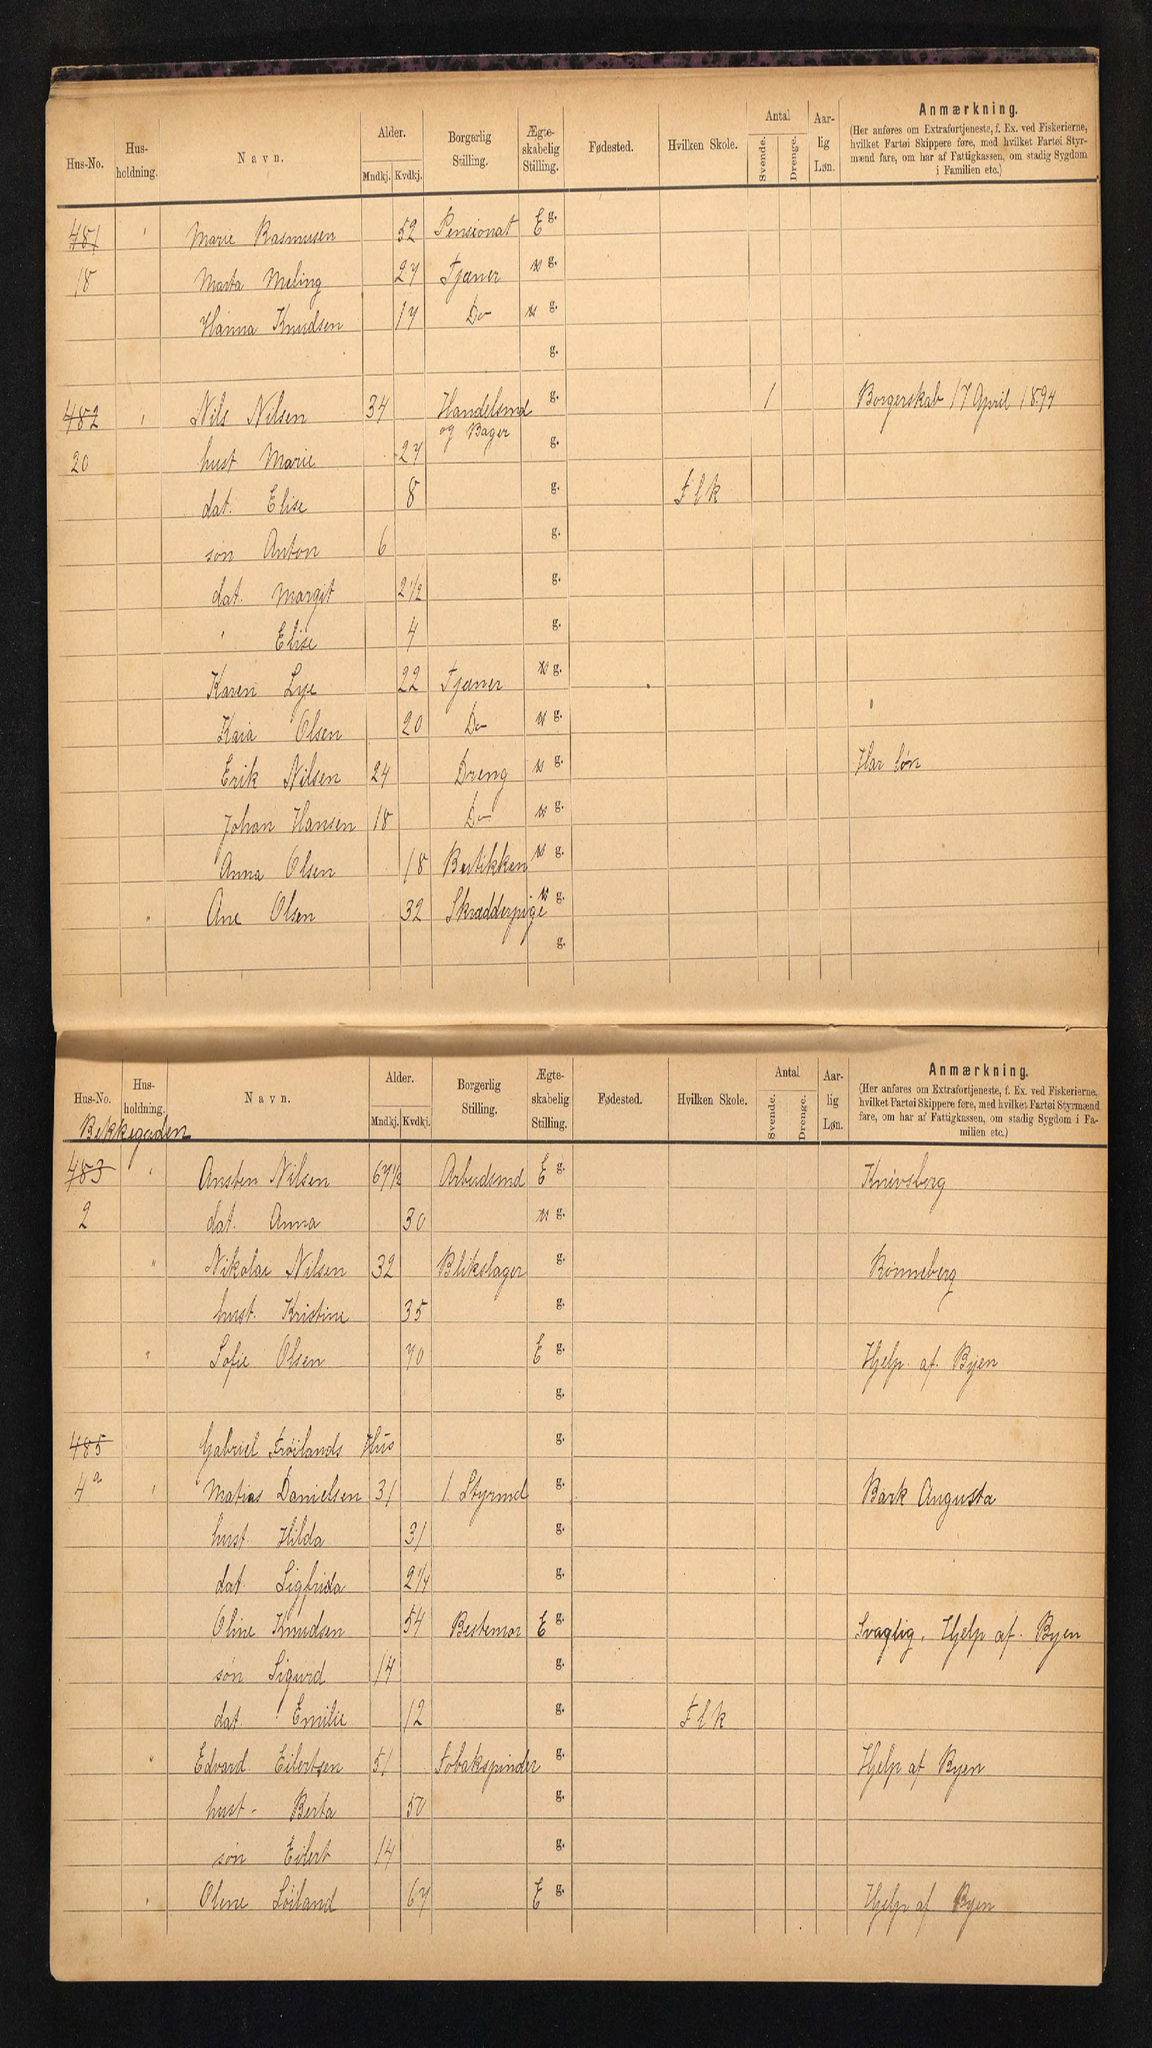 Hus-No. Hus-holdning. Navn. Alder. Mndkj. Kvdkj. Borgerlig Stilling. Ægte-skabelig Stilling. Fødested. Hvilken Skole. Antal Svende. Drenge. Aar-lig Løn. Anmærkning.
(Her anføres om Extrafortjeneste, f. Ex. ved Fiskerierne, hvilket Partøi Skippere føre, med hvilket Fartøi Styr-mænd fare, om har af Fattigkassen, om stadig Sygdom i Familien etc.)
481 " Marie Rasmusen 52 Pensionat E g.
18 Marta Meling 27 Tjæner u g.
Hanna Knudsen 17 Do u g.
g.
482 " Nils Nilsen 34 Handelsmd g. 1 Borgerskab 17 April 1894
og Bager
20 hust Marie 27 g.
dat. Elise 8 g. Flk
søn Anton 6 g.
dat. Margit 2 1/2 g.
" Elise 4 g.
Karen Lye 22 Tjæner u g.
Kaia Olsen 20 Do u g. "
Erik Nilsen 24 Dreng u g. Har løn
Johan Hansen 18 Do u g.
Anna Olsen 18 Butikken u g.
" Ane Olsen 32 Skrædderpige u g.
g.
Hus-No. Hus-holdning. Navn. Alder. Mndkj. Kvdkj. Borgerlig Stilling. Ægte-skabelig Stilling. Fødested. Hvilken Skole. Antal Svende. Drenge. Aar-lig Løn. Anmærkning.
(Her anføres om Extrafortjeneste, f. Ex. ved Fiskerierne, hvilket Partøi Skippere føre, med hvilket Fartøi Styrmænd fare, om har af Fattigkassen, om stadig Sygdom i Fa-milien etc.)
Bekkegaden
483 " Ansten Nilsen 67 1/2 Arbudsmd E g. Knivsberg
2 dat. Anna 30 u g.
" Nikolai Nilsen 32 Blikslager g. Rønneberg
hust. Kristine 35 g.
" Sofie Olsen 70 E g. Hjelp af Byen
g.
485 Gabriel Frøilands Hus g.
4 a " Matias Danielsen 31 1. Styrmd g. Bark Augusta
hust. Hilda 31 g.
dat. Sigfrida 2 1/4 g.
Oline Knudsen 54 Bestemor E g. Svaglig. Hjelp af Byen
søn Sigurd 14 g.
dat. Emilie 12 g. Flk
" Edvard Eilertsen 51 Tobakspinder g. Hjelp af Byen
hust - Berta 50 g.
søn Eilert 14 g.
" Olene Løiland 67 E g. Hjelp af Byen